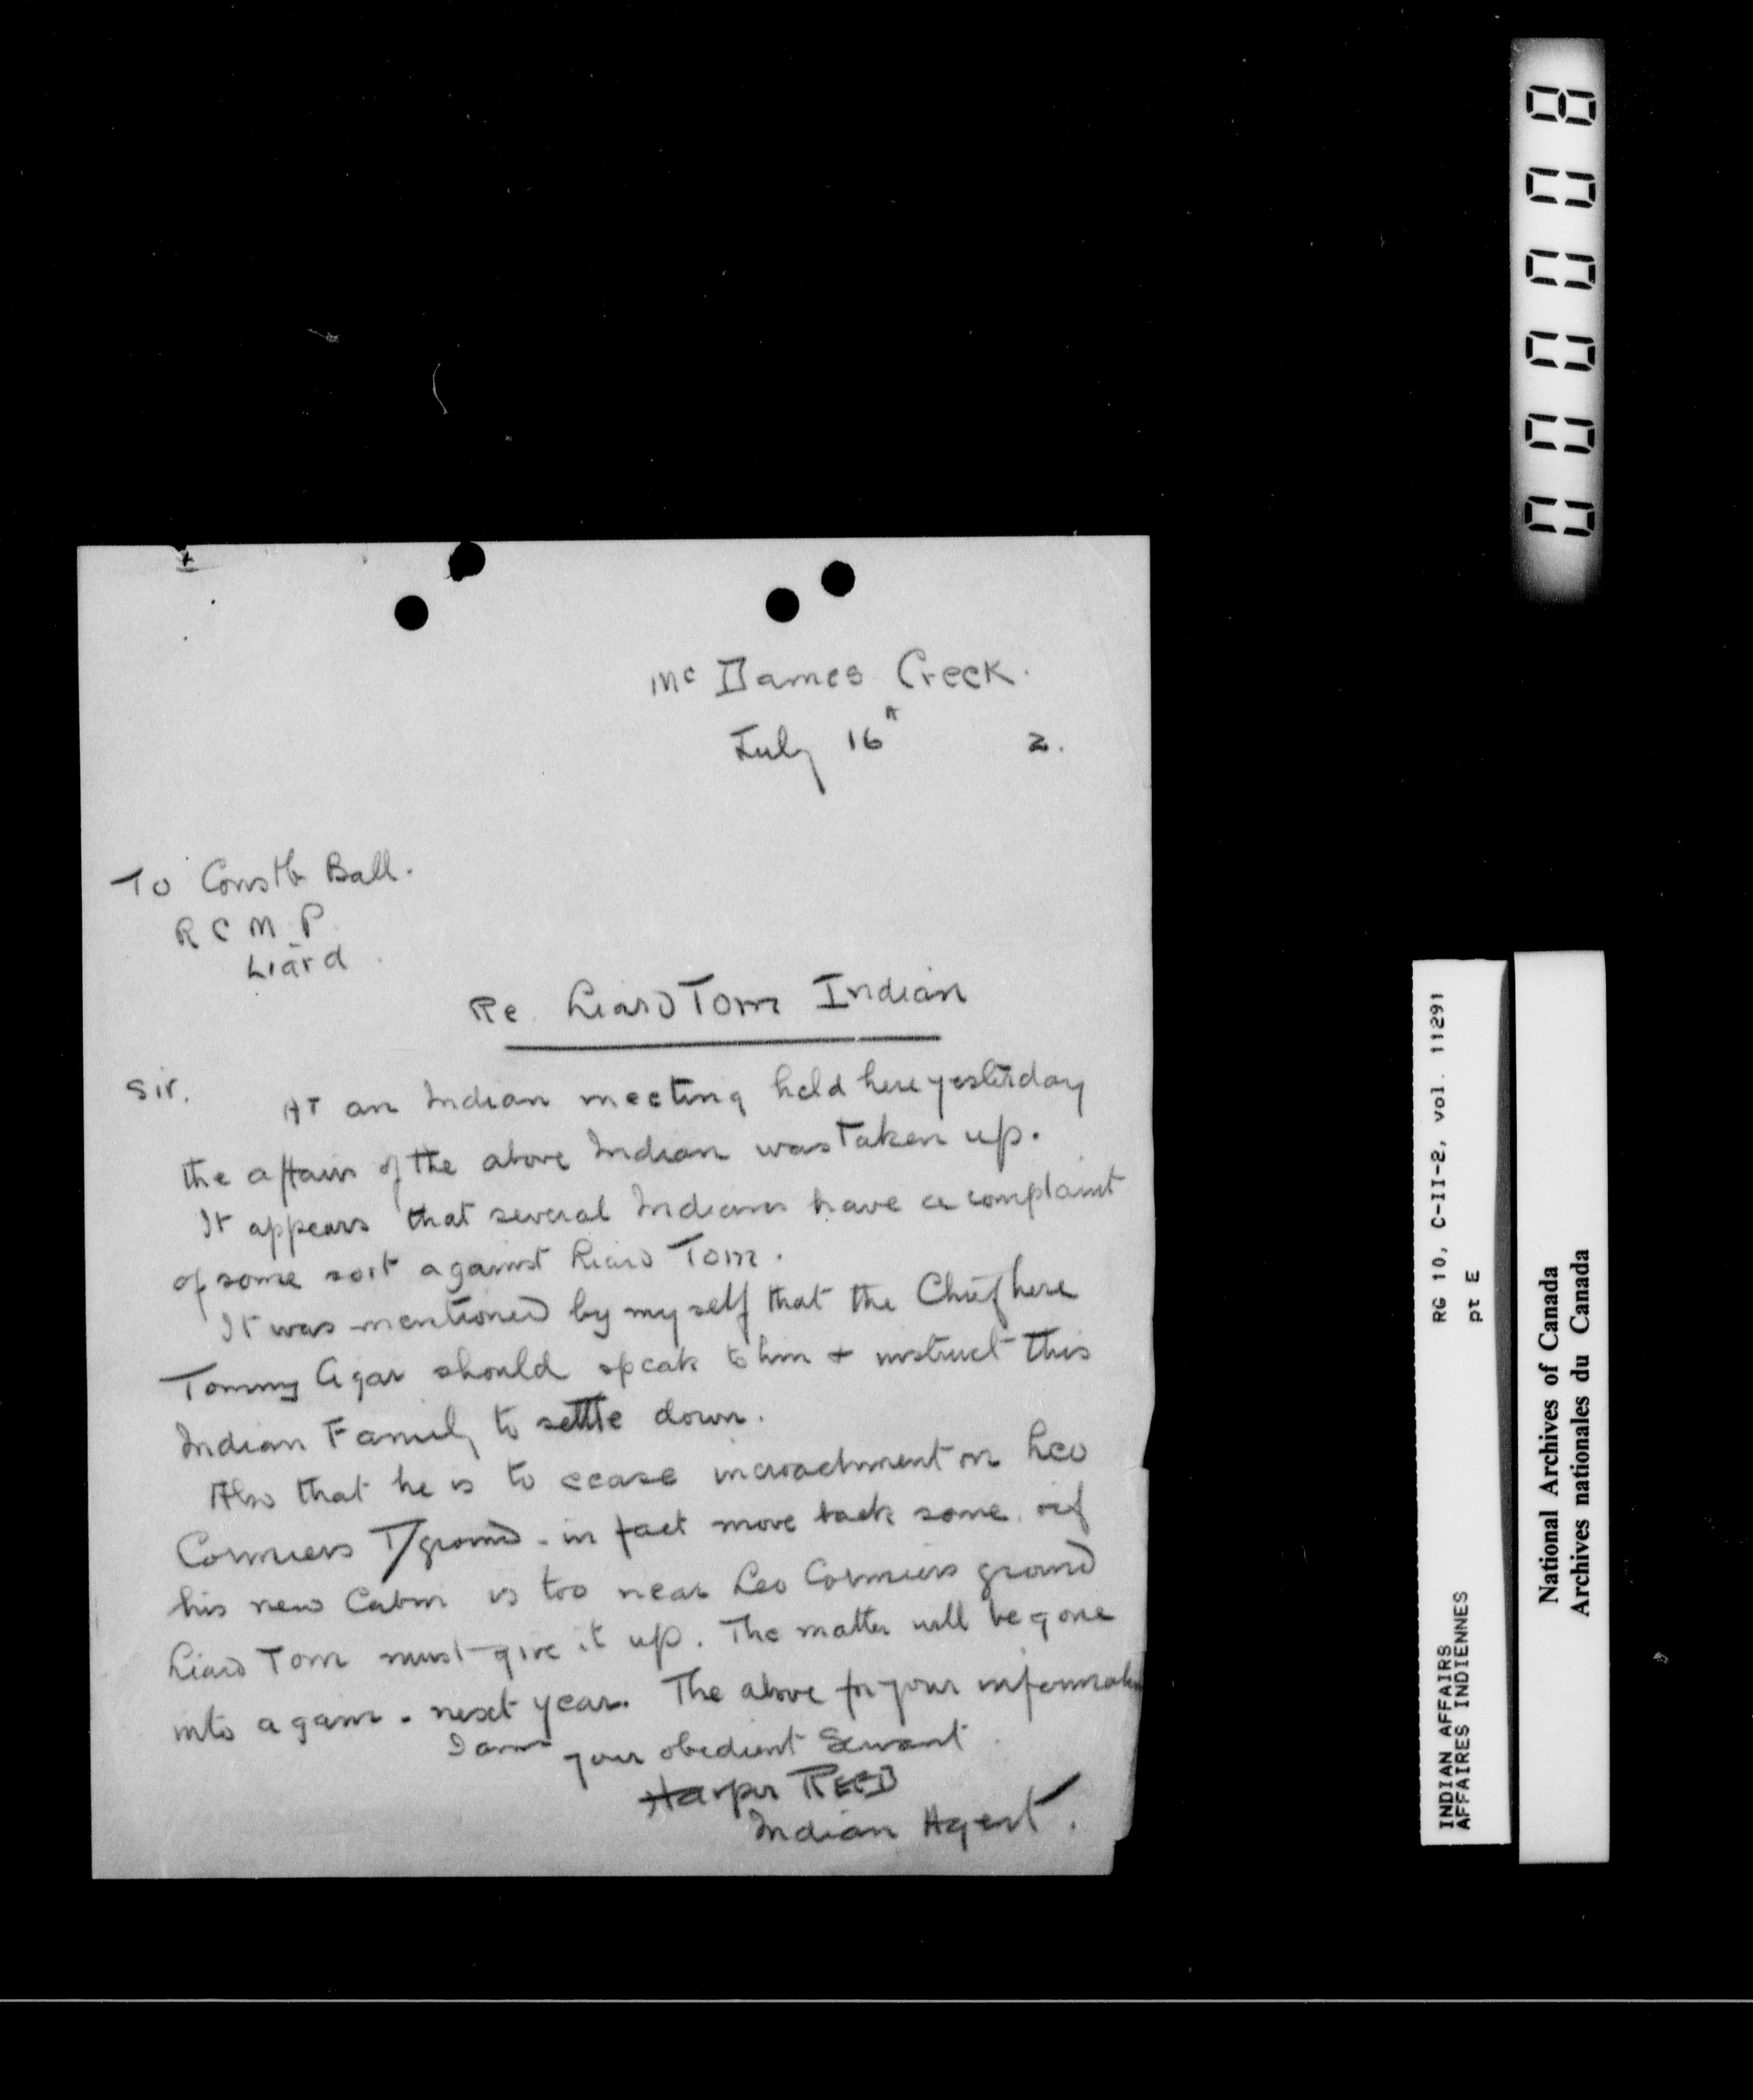 Mc Dames Creek.
July 16th 2.
To Constb Ball.
R C M P
Liard.
Re. Liard Tom Indian
Sir.
At an Indian meeting held here yesterday
the affairs of the above Indian was taken up.
It appears that several Indians have a complaint
of some sort against Liard Tom.
It was mentioned by myself that the Chief here
Tommy Agar should speak to him + instruct this
Indian Family to settle down.
Also that he is to cease incroachment on Leo
Cormiers T/ground - in fact move back some. if
his new Cabin is too near Leo Cormiers ground
Liard Tom must give it up. The matter will be gone
into again - next year. The above for your information
I am your obedient Servant
Harper REED
Indian Agent.
000008
RG 10, C-II-2, vol. 11291
pt E
INDIAN AFFAIRS
AFFAIRES INDIENNES
National Archives of Canada
Archives nationales du Canada